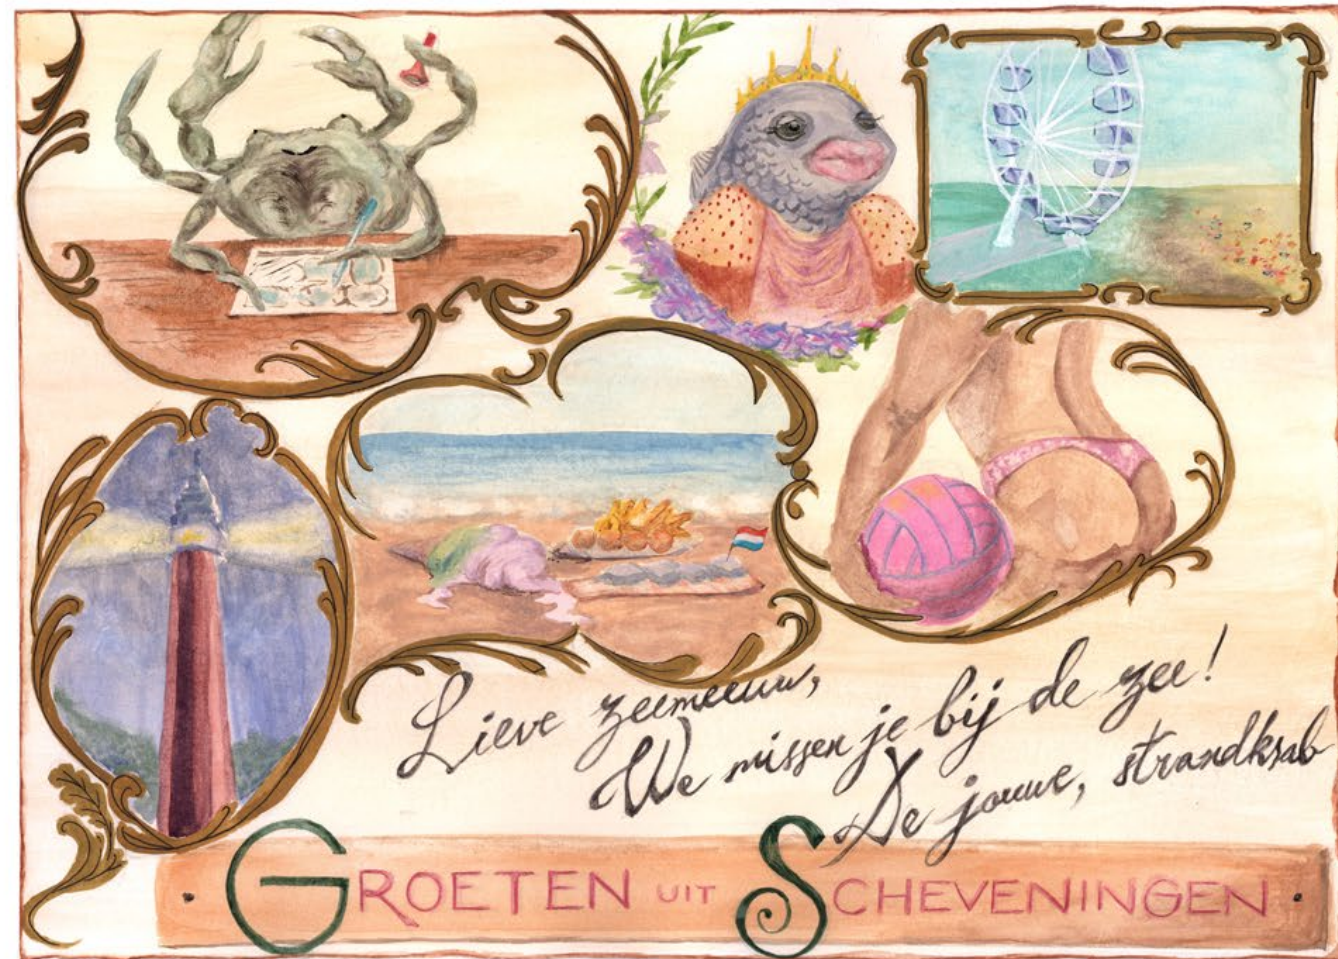 Lieve zeemeeuw,
We missen je bij de zee!
De jouwe, strandkrab
GROETEN UIT SCHEVENINGEN